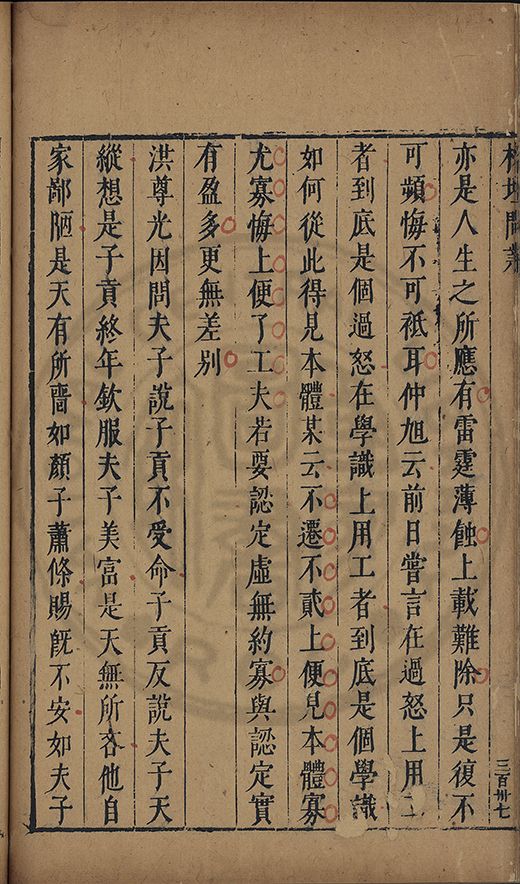 榕壇問業
亦是人生之所應有雷霆薄蝕上載難除只是復不
可頻悔不可祗耳仲旭云前日嘗言在過怒上用工
者到底是個過怒在學識上用工者到底是個學識
如何從此得見本體某云不遷不貳上便見本體寡
尤寡悔上便了工夫若要認定虛無約寡與認定實
有盈多更無差別
洪尊光因問夫子說子貢不受命子貢反說夫子天
縱想是子貢終年欽服夫子美富是天無所吝他自
家鄙陋是天有所嗇如顏子蕭條賜既不安如夫子
三百卅七